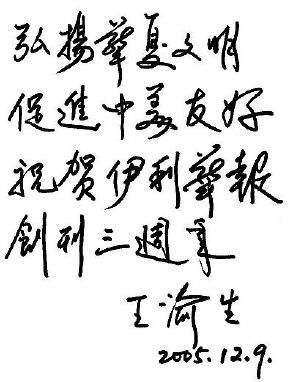 弘揚華夏文明
促進中美友好
祝贺伊利華報
創刊三週年
王渝生
2005.12.9.